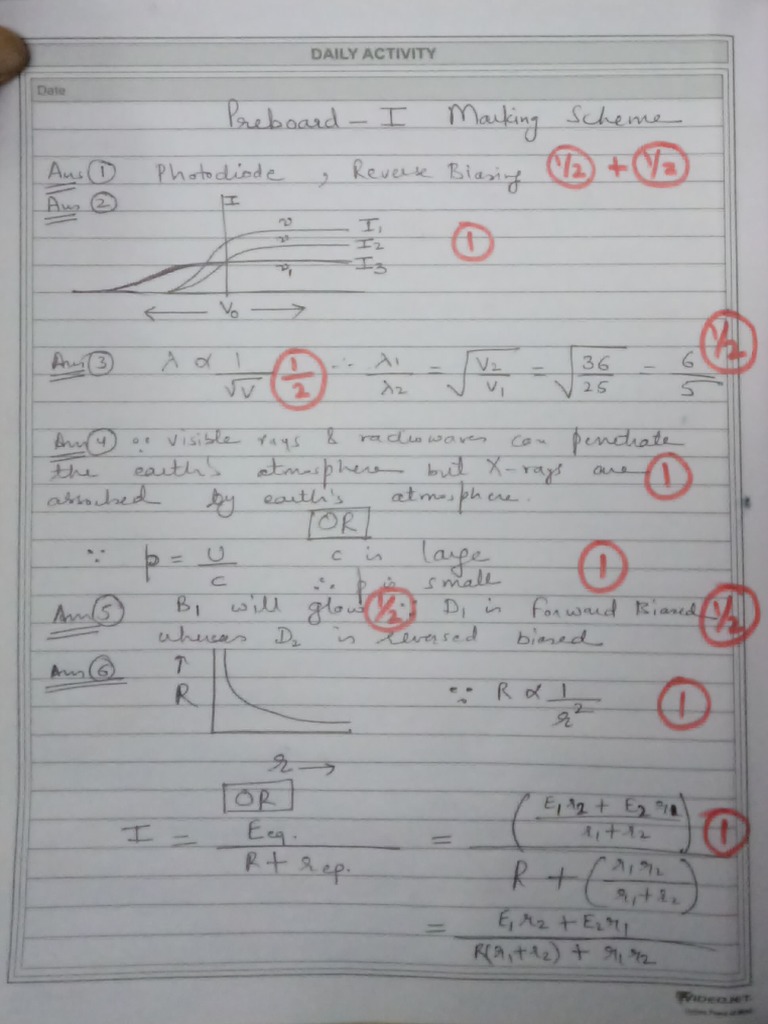 DAILY ACTIVITY
Date
Preboard - I Marking Scheme
Ans ① Photodiode , Reverse Biasing 1/2 + 1/2
Ans ②
I
ν I₁
ν I₂
ν₁ I₃
1
← V₀ →
Ans ③ λ ∝ 1/√V 1/2 ∴ λ₁/λ₂ = √(V₂/V₁) = √(36/25) = 6/5 1/2
Ans ④ ∵ visible rays & radiowaves can penetrate
the earth's atmosphere but X-rays are 1
absorbed by earth's atmosphere.
OR
∵ p = U/c c is large 1
∴ p is small
Ans ⑤ B₁ will glow 1/2 ∵ D₁ is forward Biased 1/2
whereas D₂ is reversed biased
Ans ⑥ ↑
R ∵ R ∝ 1/r² 1
r →
OR
I = Eeq./(R + rep.) = ((E₁r₂ + E₂r₁)/(r₁+r₂))/(R + (r₁r₂/(r₁+r₂))) 1
= (E₁r₂ + E₂r₁)/(R(r₁+r₂) + r₁r₂)
VIDEOJET